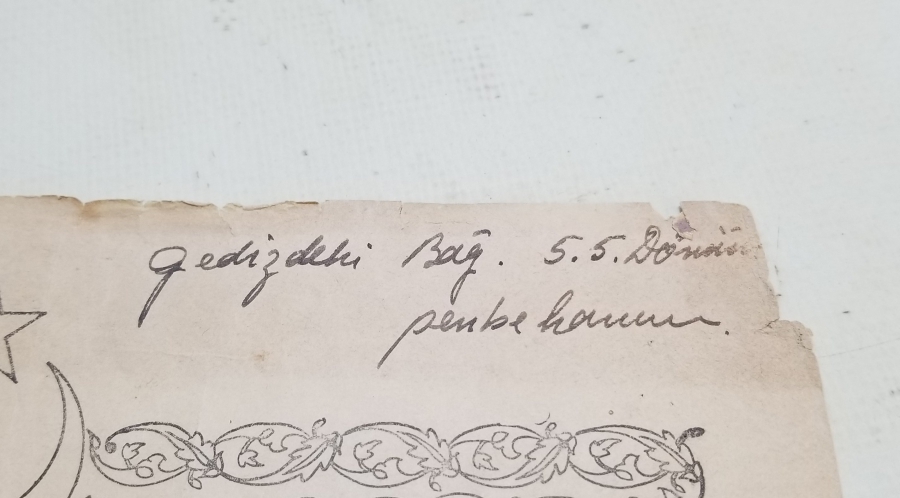 Gedizdeki Bağ. 5.5. Dönüm
penbe hanım.